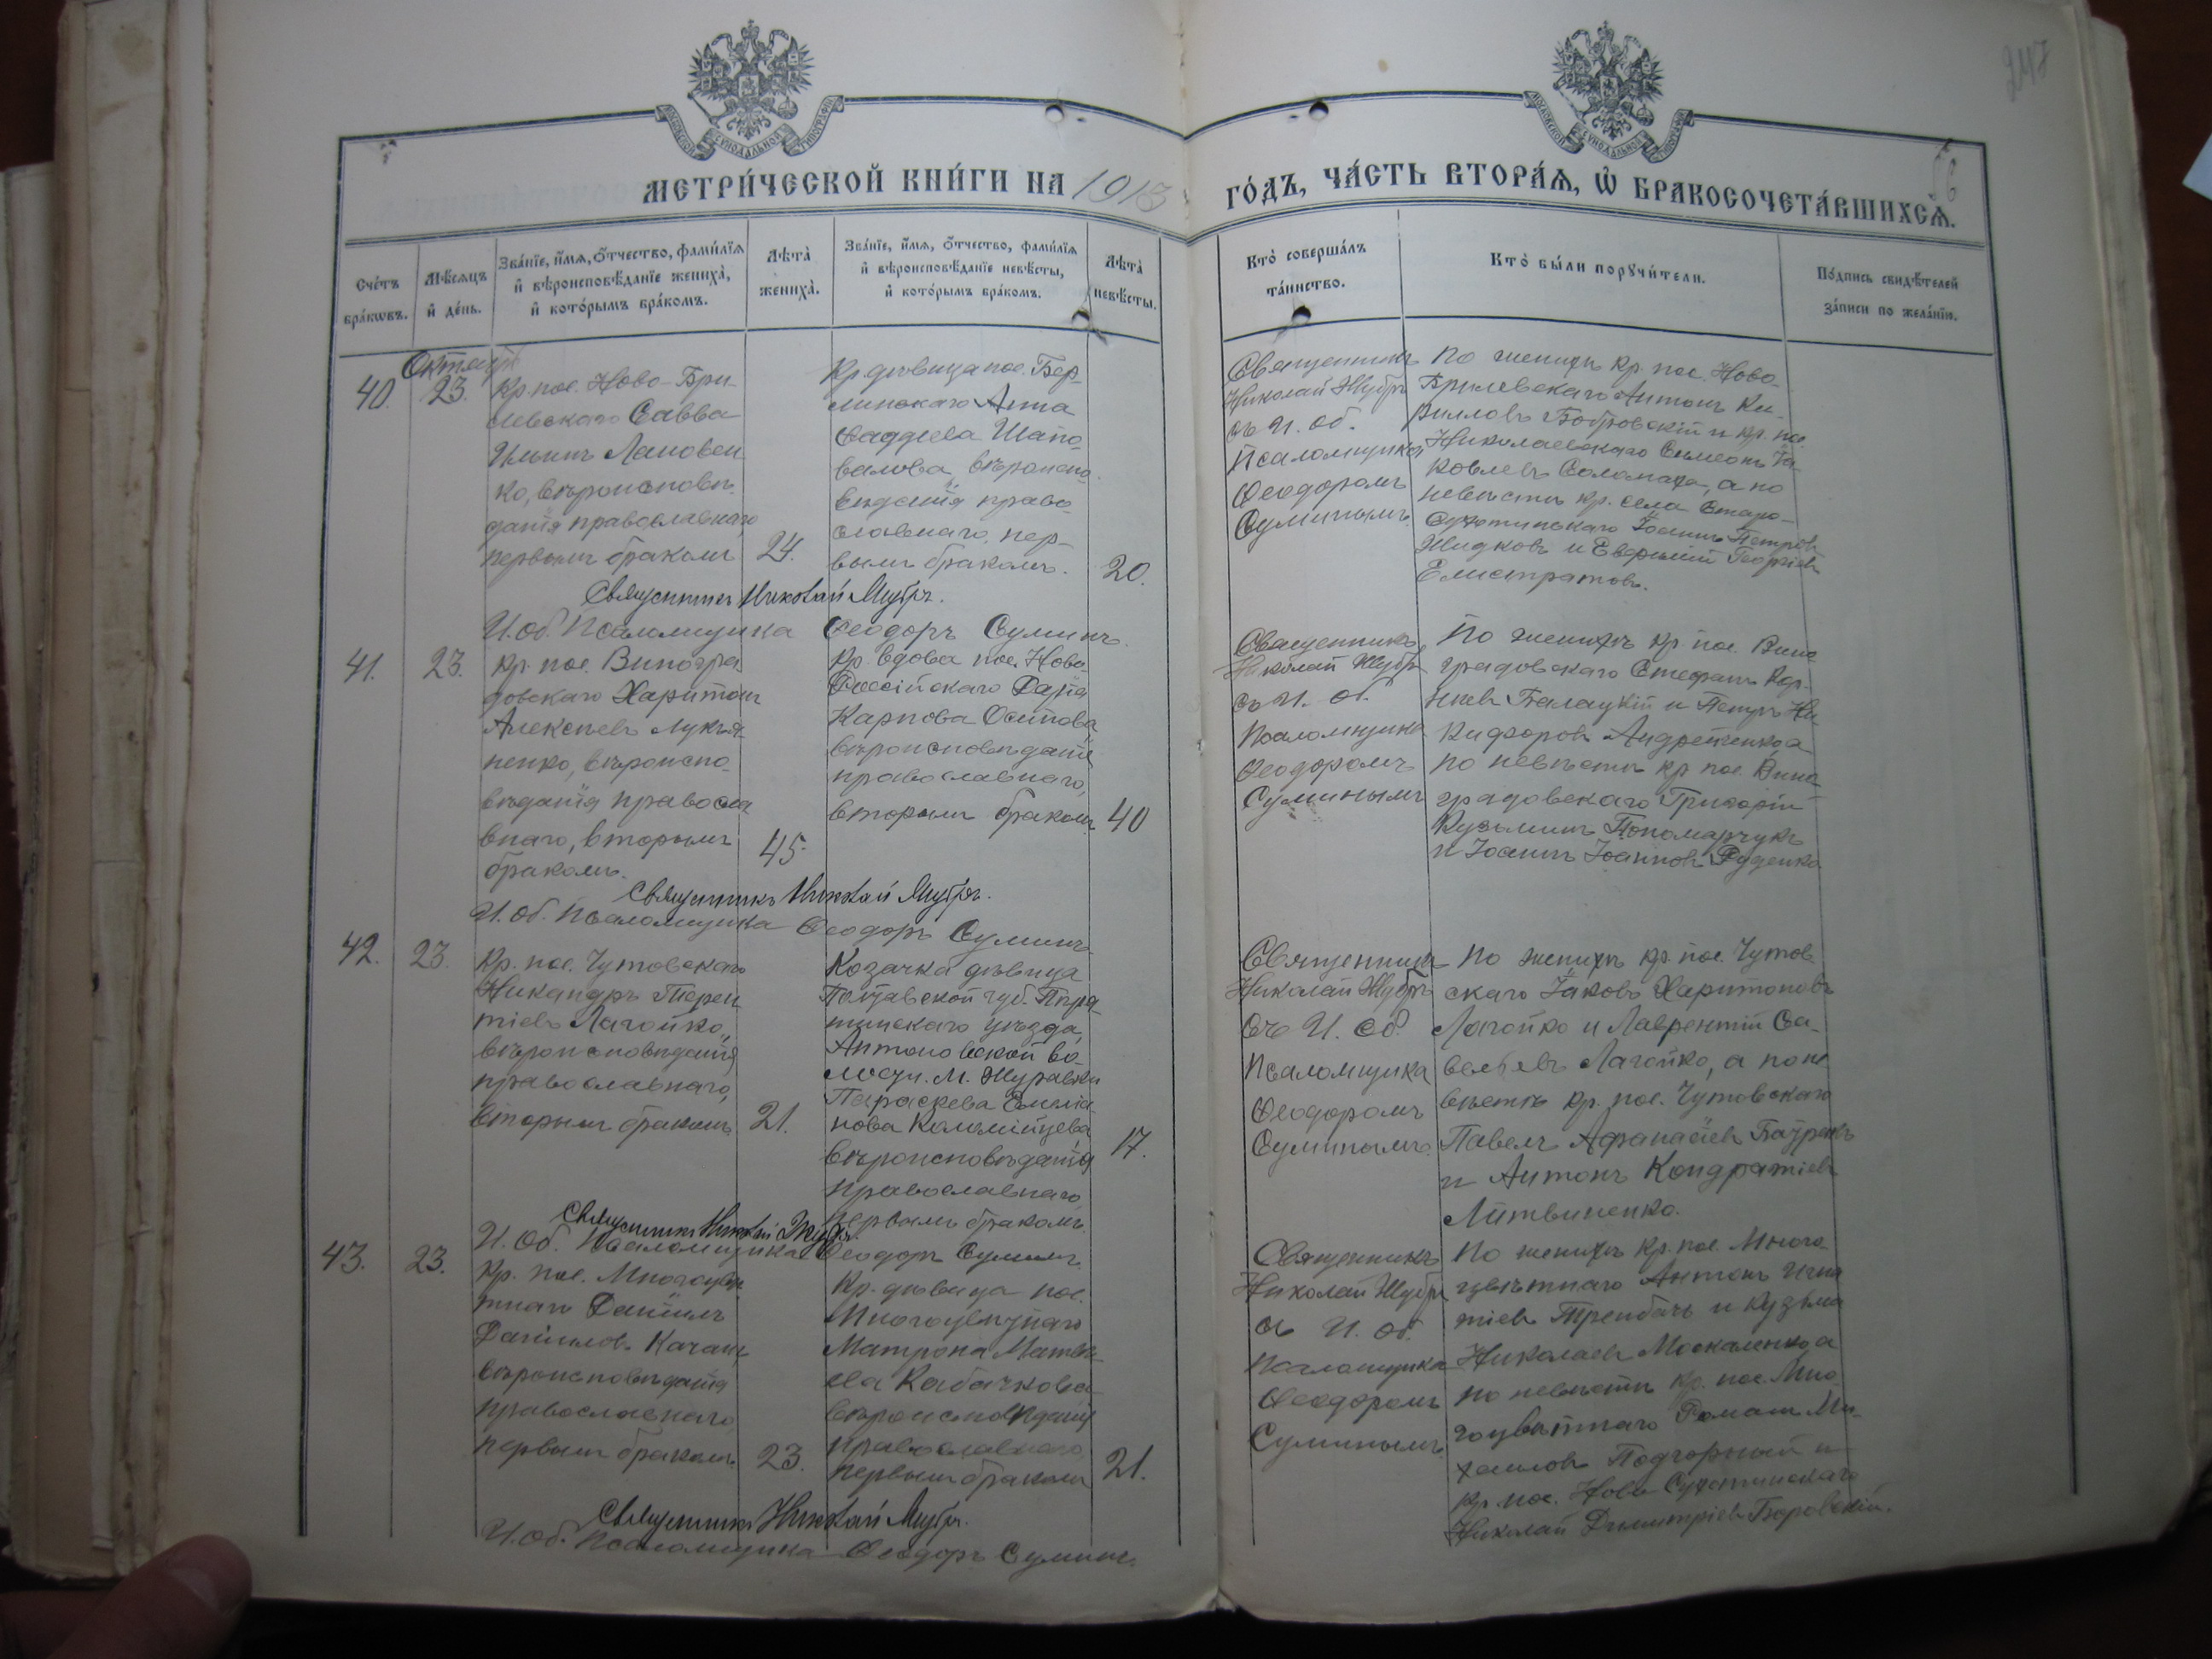 247
МОСКОВСКОЙ СѴНОДАЛЬНОЙ ТИПОГРАФІИ
МОСКОВСКОЙ СѴНОДАЛЬНОЙ ТИПОГРАФІИ
МЕТРИ́ЧЕСКОЙ КНИ́ГИ НА 1913 ГО́ДЪ, ЧА́СТЬ ВТОРА́Я, Ѡ҆ БРАКОСОЧЕТА́ВШИХСЯ.
Сче́тъ бра́кѡвъ.
Мѣ́сяцъ и҆ де́нь.
Зва́нїе, и҆́мя, ѻ҆́тчество, фами́лїя и҆ вѣроисповѣ́данїе жениха̀, и҆ кото́рымъ бра́комъ.
Лѣта̀ жениха̀.
Зва́нїе, и҆́мя, ѻ҆́тчество, фами́лїя и҆ вѣроисповѣ́данїе невѣ́сты, и҆ кото́рымъ бра́комъ.
Лѣта̀ невѣ́сты.
Кто̀ соверша́лъ та́инство.
Кто̀ бы́ли порꙋчи́тели.
По́дпись свидѣ́телей за́писи по жела́нїю.
40.
Октября
23.
Кр. пос. Ново-Бри-
левскаго Савва
Ильинъ Лановен
ко, вѣроисповѣ
данія православнаго,
первымъ бракомъ
24.
Кр. дѣвица пос. Бер-
линскаго Анна
Ѳаддеева Шапо
валова, вѣроиспо
вѣданія право
славнаго, пер-
вымъ бракомъ.
20.
Священникъ
Николай Жубръ
съ И. об.
Псаломщика
Ѳеодоромъ
Суминымъ
По женихѣ кр. пос. Ново-
Брилевскаго Антонъ Ки-
рилловъ Бобровскій и кр. пос.
Николаевскаго Симеонъ Іа-
ковлевъ Саламаха, а по
невѣстѣ кр. села Старо-
Сухотинскаго Іоаннъ Петровъ
Жидковъ и Евфимій Георгіевъ
Елистратовъ.
Священникъ Николай Жубръ.
И. об. Псаломщика Ѳеодоръ Суминъ.
41.
23.
Кр. пос. Виногра
довскаго Харитонъ
Алексѣевъ Лукья-
ненко, вѣроиспо-
вѣданія правосла
внаго, вторымъ
бракомъ.
45
Кр. вдова пос. Ново
Россійскаго
Карпова Осипова,
вѣроисповѣданія
православнаго,
вторымъ бракомъ
40
Священникъ
Николай Жубръ
съ И. об.
Псаломщика
Ѳеодоромъ
Суминымъ
По женихѣ кр. пос. Вино
градовскаго Стефанъ Кор-
ніевъ Балацкій и Петръ Ни
кифоровъ Андрейченко, а
по невѣстѣ кр. пос. Вино
градовскаго Григорій
Кузьминъ Пономарчукъ
и Іоаннъ Іоанновъ Руденко
Священникъ Николай Жубръ.
И. об. Псаломщика Ѳеодоръ Суминъ.
42.
23.
Кр. пос. Чутовскаго
Никандръ Терен
тіевъ Лагойко,
вѣроисповѣданія
православнаго,
вторымъ бракомъ
21.
Козачка дѣвица
Полтавской губ. Пиря
тинскаго уѣзда,
Антоновской во-
лости. М. Журавки
Параскева Емелiа
нова Коломійцева
вѣроисповѣданія
православнаго
первымъ бракомъ
17.
Священника
Николай Жубръ
Съ И. об
Псаломщика
Ѳеодоромъ
Суминымъ.
По женихѣ кр. пос. Чутов
скаго Іаковъ Харитоновъ
Лагойко и Лаврентій Са-
вельевъ Лагойко, а по не
вѣстѣ кр. пос. Чутовскаго
Павелъ Афанасіевъ
и Антонъ Кондратіевъ
Литвиненко.
Священникъ Николай Жубръ.
И. об. Псаломщика Ѳеодоръ Суминъ.
43.
23.
Кр. пос. Многоцвѣ
тнаго Даніилъ
Даниловъ Качанъ,
вѣроисповѣданія
православнаго,
первымъ бракомъ
23.
Кр. дѣвица пос.
Многоцвѣтнаго
Матрона Матвѣ-
ева Кабачкова
вѣроисповѣданія
православнаго,
первымъ бракомъ
21.
Священникъ
Николай Жубръ
съ И. об.
Псаломщика
Ѳеодоромъ
Суминымъ
По женихѣ кр. пос. Много-
цвѣтнаго Антонъ Игна
тіевъ Трембачъ и Кузьма
Николаевъ Москаленко, а
по невѣстѣ кр. пос. Мно
гоцвѣтнаго Романъ Ми-
хаиловъ Подгорный и
кр. пос. Ново Сухотинскаго
Николай Димитріевъ Боровскій.
Священникъ Николай Жубръ.
И. об. Псаломщика Ѳеодоръ Суминъ.